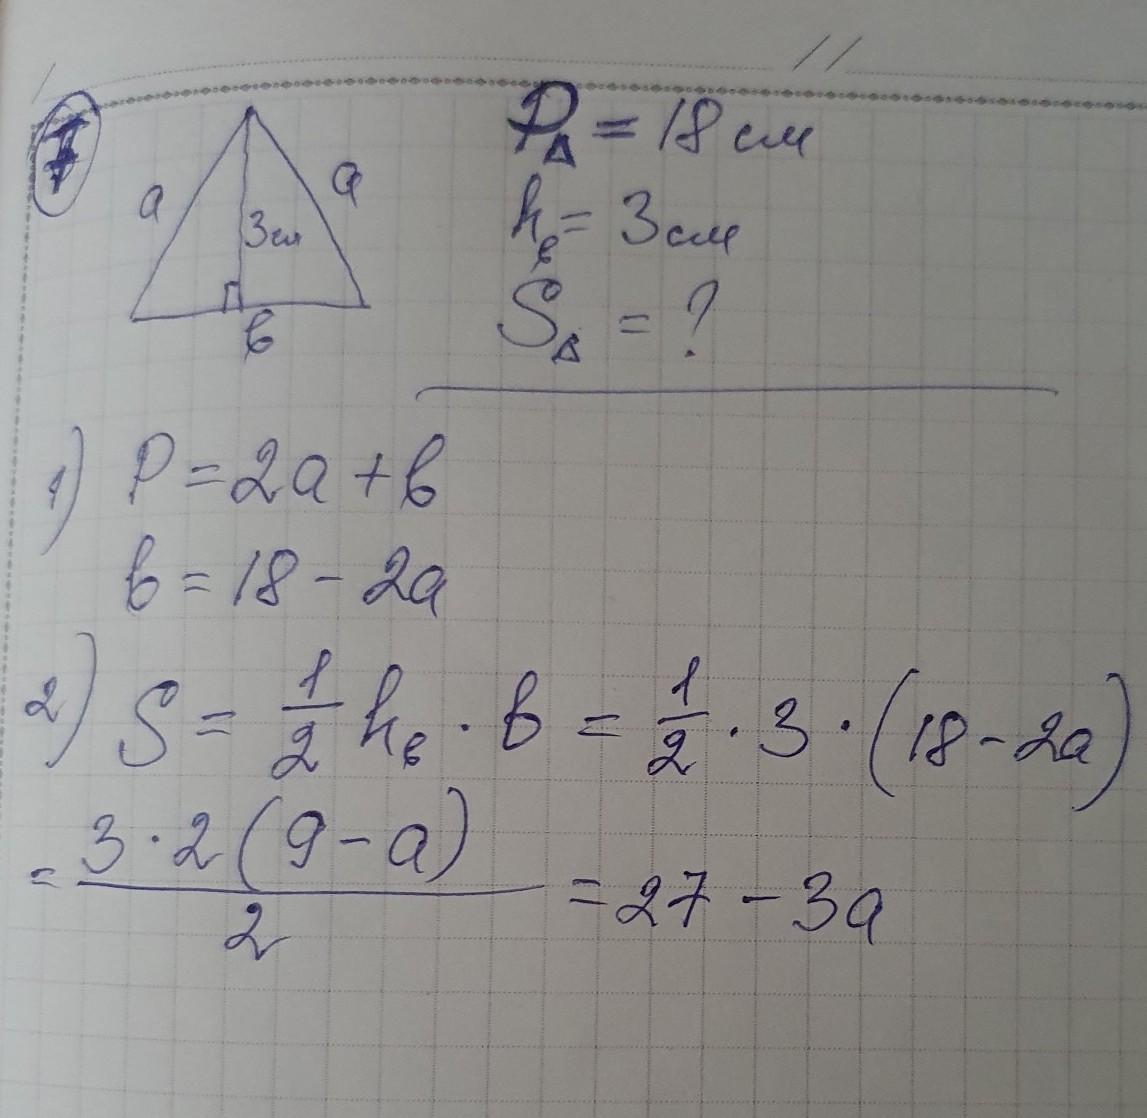 I
a
a
3см
в
P△ = 18 см
hв = 3 см
S△ = ?
1) P = 2a + в
в = 18 - 2a
2) S = 1/2 hв · в = 1/2 · 3 · (18 - 2a)
= 3 · 2 (9 - a) / 2 = 27 - 3a